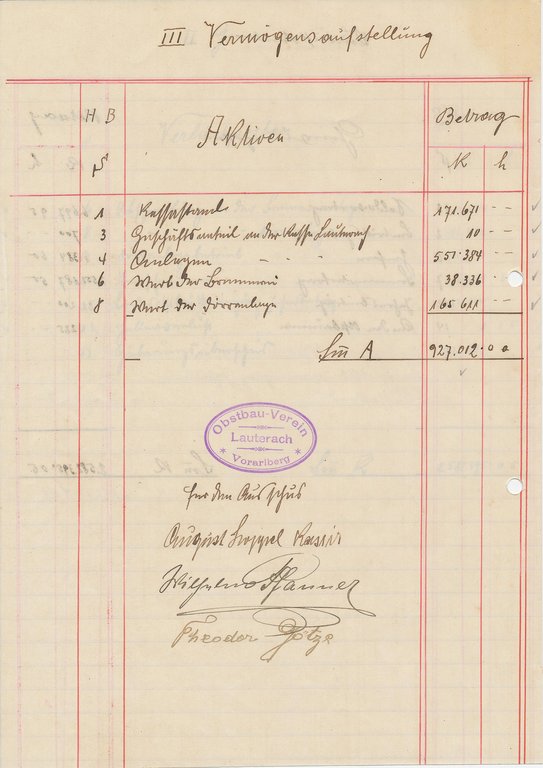 III Vermögensaufstellung
H B Aktiven Betrag
S K h
1 Kassastand 171.671 --
3 Geschäftsanteil an der Kassa Lauterach 10 --
4 Anlagen - - 551.384 --
6 Wert der Brennerei 38.336 --
8 Wert der Dörranlage 165.611 --
Sm A 927.012.00
Obstbau-Verein
Lauterach
* Vorarlberg *
für den Ausschus
August Kassir
Wilhelm Pfanner
Theodor Götze